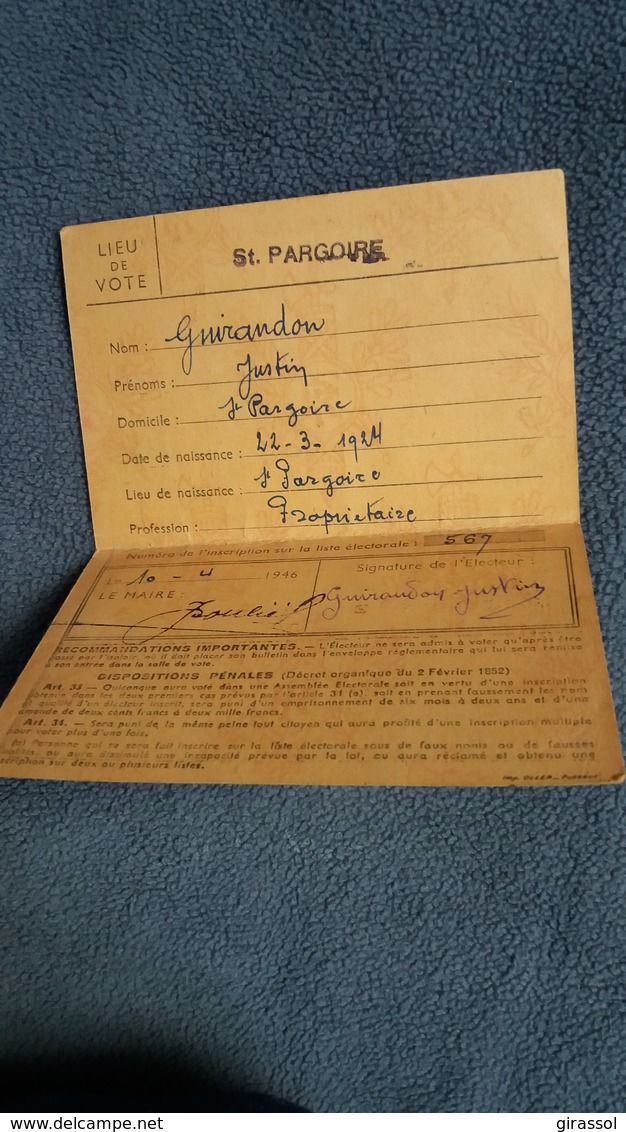 LIEU
DE
VOTE
St. PARGOIRE
Nom : Guiraudon
Prénoms : Justin
Domicile : St Pargoire
Date de naissance : 22-3-1924
Lieu de naissance : St Pargoire
Profession : Propriétaire
Numéro de l'inscription sur la liste électorale : 567
Le 10-4 1946
LE MAIRE :
Signature de l'Electeur :
Guiraudon Justin
RECOMMANDATIONS IMPORTANTES. — L'Électeur ne sera admis à voter qu'après être
passé par l'isoloir, où il doit placer son bulletin dans l'enveloppe réglementaire qui lui sera remise
à son entrée dans la salle de vote.
DISPOSITIONS PÉNALES (Décret organique du 2 Février 1852)
Art. 33 — Quiconque aura voté dans une Assemblée Électorale soit en vertu d'une inscription
obtenue dans les deux premiers cas prévus par l'article 31 (a), soit en prenant faussement les nom
et qualité d'un électeur inscrit, sera puni d'un emprisonnement de six mois à deux ans et d'une
amende de deux cents francs à deux mille francs.
Art. 34. — Sera puni de la même peine tout citoyen qui aura profité d'une inscription multiple
pour voter plus d'une fois.
(a) Personne qui se sera fait inscrire sur la liste électorale sous de faux noms ou de fausses
qualités, ou aura dissimulé une incapacité prévue par la loi, ou aura réclamé et obtenu une
inscription sur deux ou plusieurs listes.
Imp. OLLER_
www.delcampe.net
girassol